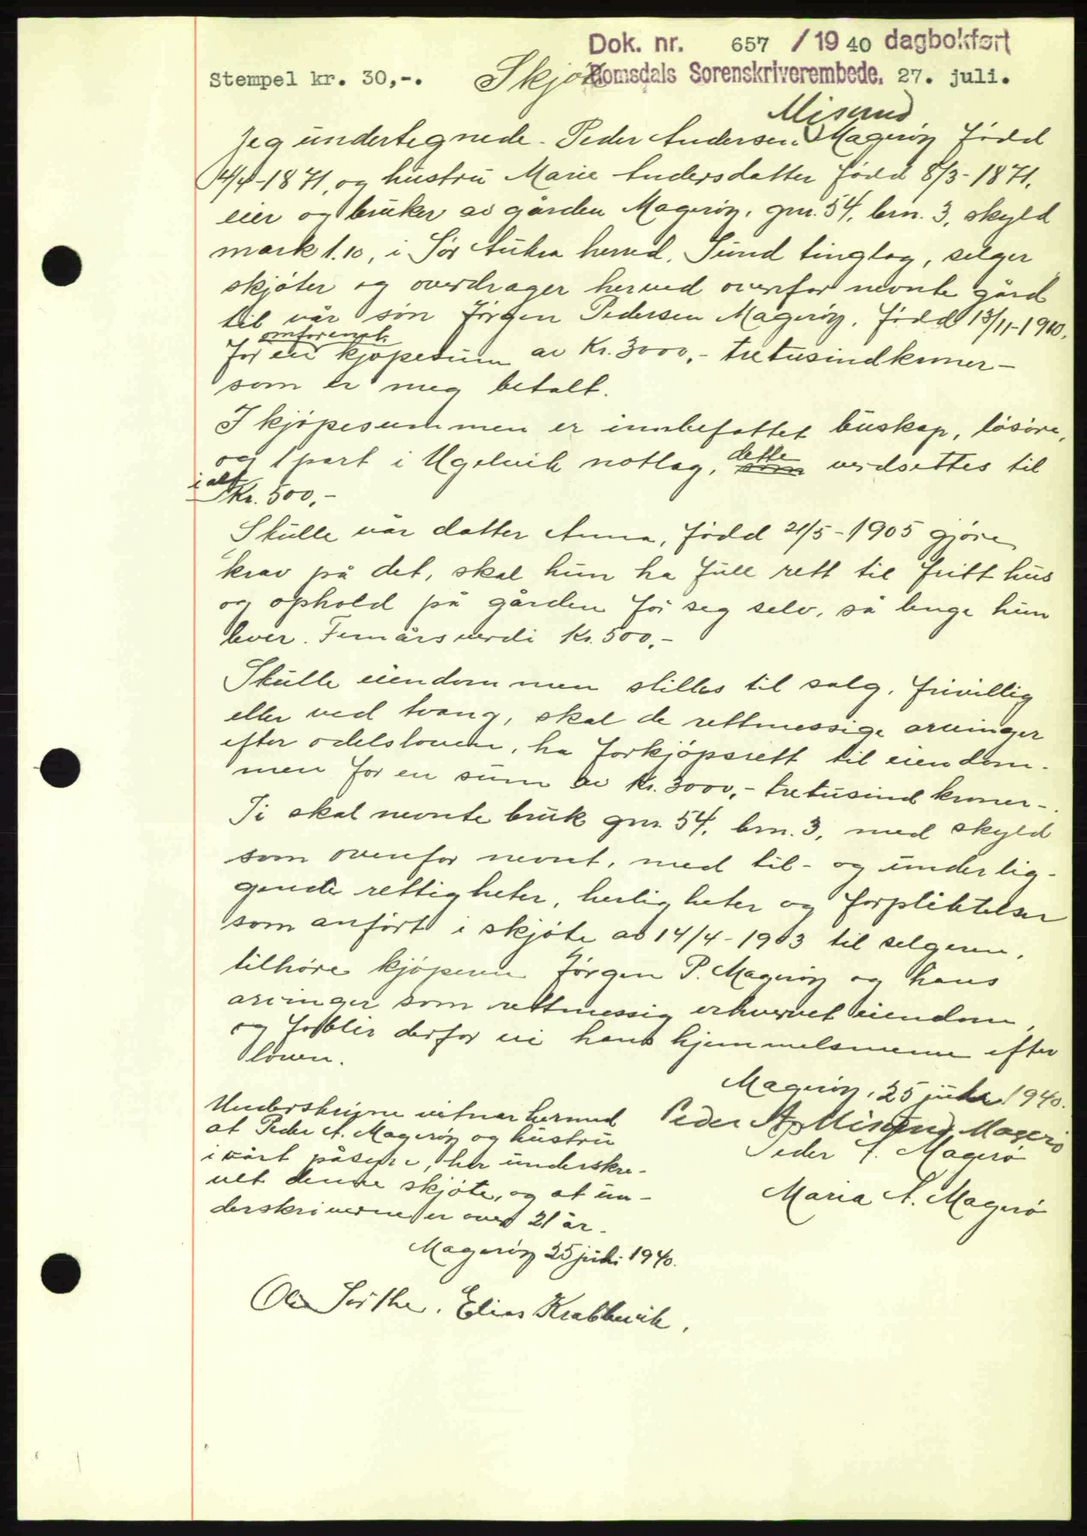 Dok. nr. 657 / 19 40 dagbokført
Stempel kr. 30,-. Skjøte Romsdals Sorenskriverembede. 27. juli.
Misund
Jeg undertegnede Peder Andersen Magerøy født
4/4-1871, og hustru Marie Andersdatter født 8/3-1871,
eier og bruker av gården Magerøy, gnr. 54, brn. 3, skyld
mark 1.10, i Sør Aukra herred, Sund tinglag, selger
skjøter og overdrager herved ovenfor nevnte gård
til vår sön Jörgen Pedersen Magerøy, född 13/11-1910,
omforenet
for en kjøpesum av Kr. 3000,- tretusindkroner-
som er meg betalt.
I kjøpesummen er innbefattet buskap, lösöre,
og 1 part i Ugelvik notlag, dette som verdsettes til
i alt Kr. 500,-
Skulle vår datter Anna, född 21/5-1905 gjöre
krav på det, skal hun ha full rett til fritt hus
og ophold på gården for seg selv, så lenge hun
lever. Femårsverdi Kr. 500,-
Skulle eiendommen stilles til salg, frivillig
eller ved tvang, skal de rettmessige arvinger
efter odelsloven, ha forkjøpsrett til eiendom-
men for en sum av Kr. 3000,- tretusind kroner-.
Ti skal nevnte bruk gnr. 54, brn. 3, med skyld
som ovenfor nevnt, med til- og underlig-
gende rettigheter, herligheter og forpliktelser
som anfört i skjöte av 14/4-1903 til selgeren,
tilhöre kjöperen Jörgen P. Magerøy og hans
arvinger som rettmessig erhvervet eiendom,
og forblir derfor vi hans hjemmelsmenn efter
loven.
Magerøy, 25 juli 1940.
Peder A. Misund Magerö
Peder A. Magerö
Maria A. Magerö
Underskrivne vitner herved
at Peder A. Magerøy og hustru
i vårt påsyn, har underskre-
vet denne skjöte, og at un-
derskriverne er over 21 år.
Magerøy 25 juli 1940.
Elias Krabbevik.